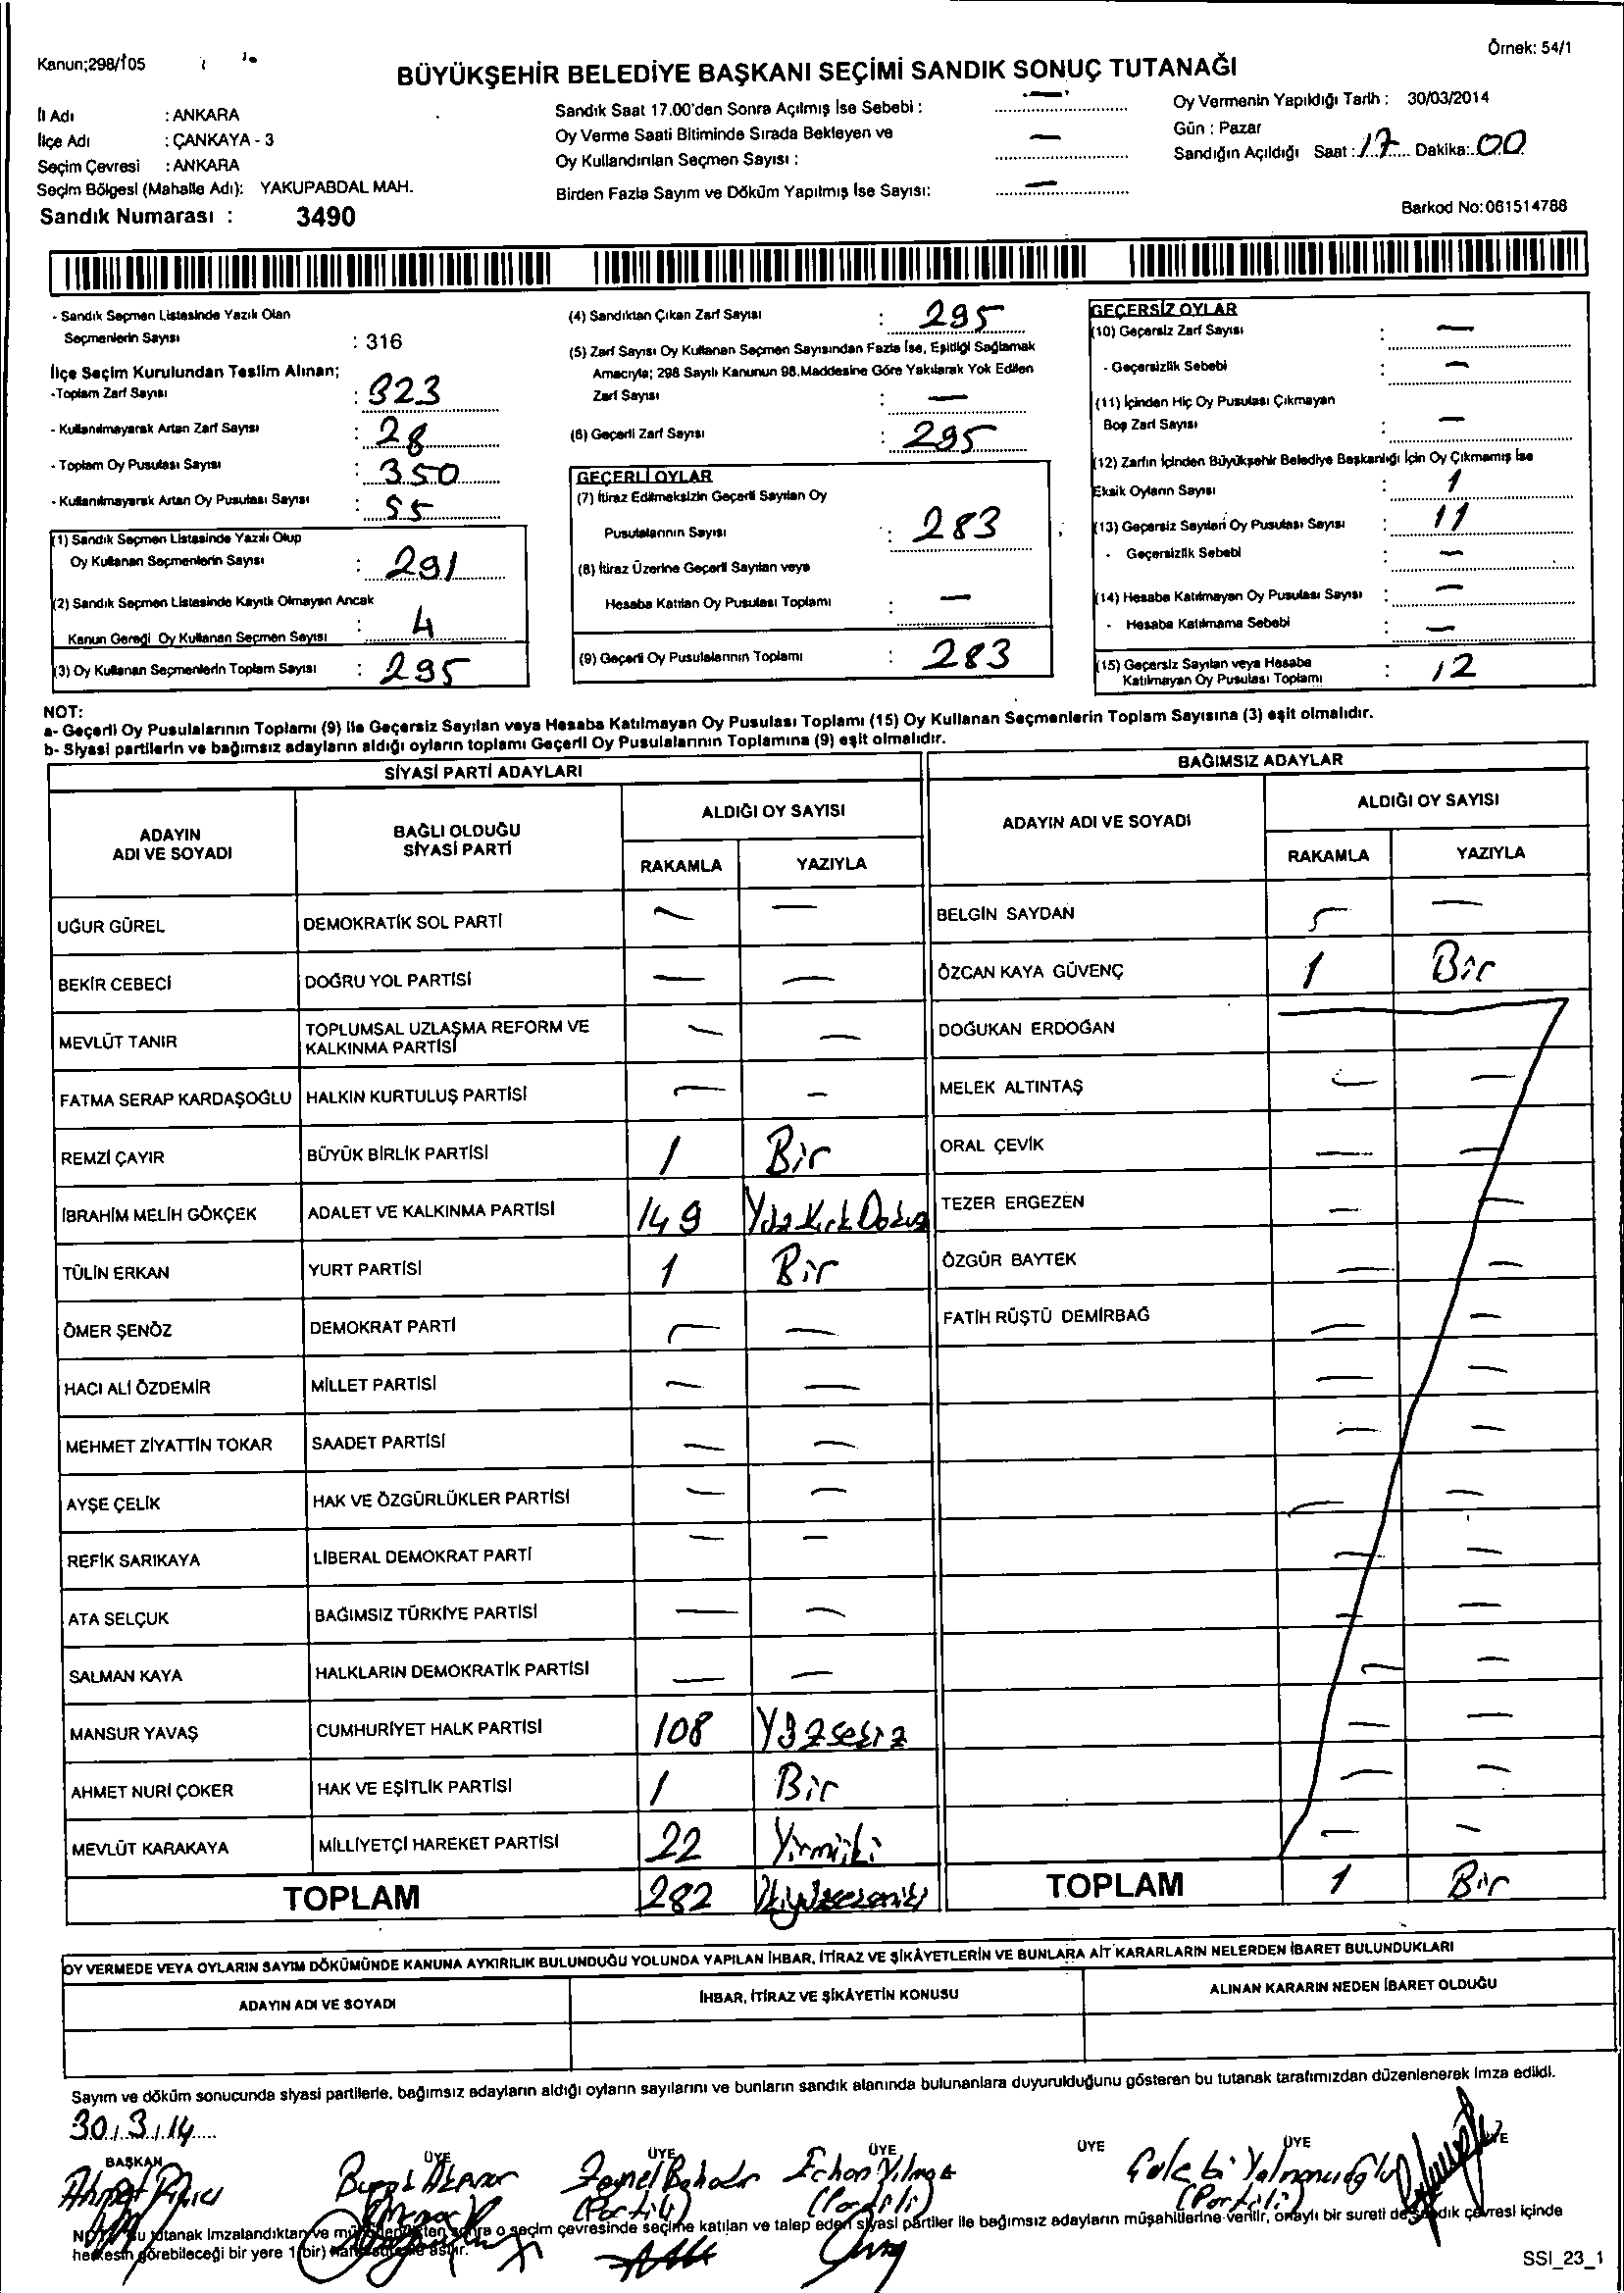 Kanun;298/105
Örnek: 54/1
BÜYÜKŞEHİR BELEDİYE BAŞKANI SEÇİMİ SANDIK SONUÇ TUTANAĞI
İl Adı : ANKARA
İlçe Adı : ÇANKAYA - 3
Seçim Çevresi : ANKARA
Seçim Bölgesi (Mahalle Adı): YAKUPABDAL MAH.
Sandık Numarası : 3490
Sandık Saat 17.00'den Sonra Açılmış İse Sebebi : —
Oy Verme Saati Bitiminde Sırada Bekleyen ve
Oy Kullandırılan Seçmen Sayısı : —
Birden Fazla Sayım ve Döküm Yapılmış İse Sayısı: —
Oy Vermenin Yapıldığı Tarih : 30/03/2014
Gün : Pazar
Sandığın Açıldığı Saat : 17 Dakika: 00
Barkod No:061514788
- Sandık Seçmen Listesinde Yazılı Olan
Seçmenlerin Sayısı : 316
İlçe Seçim Kurulundan Teslim Alınan;
-Toplam Zarf Sayısı : 323
- Kullanılmayarak Artan Zarf Sayısı : 28
- Toplam Oy Pusulası Sayısı : 350
- Kullanılmayarak Artan Oy Pusulası Sayısı : 55
(1) Sandık Seçmen Listesinde Yazılı Olup
Oy Kullanan Seçmenlerin Sayısı : 291
(2) Sandık Seçmen Listesinde Kayıtlı Olmayan Ancak
Kanun Gereği Oy Kullanan Seçmen Sayısı : 4
(3) Oy Kullanan Seçmenlerin Toplam Sayısı : 295
(4) Sandıktan Çıkan Zarf Sayısı : 295
(5) Zarf Sayısı Oy Kullanan Seçmen Sayısından Fazla İse, Eşitliği Sağlamak
Amacıyla; 298 Sayılı Kanunun 98.Maddesine Göre Yakılarak Yok Edilen
Zarf Sayısı : —
(6) Geçerli Zarf Sayısı : 295
GEÇERLİ OYLAR
(7) İtiraz Edilmeksizin Geçerli Sayılan Oy
Pusulalarının Sayısı : 283
(8) İtiraz Üzerine Geçerli Sayılan veya
Hesaba Katılan Oy Pusulası Toplamı : —
(9) Geçerli Oy Pusulalarının Toplamı : 283
GEÇERSİZ OYLAR
(10) Geçersiz Zarf Sayısı : —
- Geçersizlik Sebebi : —
(11) İçinden Hiç Oy Pusulası Çıkmayan
Boş Zarf Sayısı : —
(12) Zarfın İçinden Büyükşehir Belediye Başkanlığı İçin Oy Çıkmamış İse
Eksik Oyların Sayısı : 1
(13) Geçersiz Sayılan Oy Pusulası Sayısı : 11
- Geçersizlik Sebebi : —
(14) Hesaba Katılmayan Oy Pusulası Sayısı : —
- Hesaba Katılmama Sebebi : —
(15) Geçersiz Sayılan veya Hesaba
Katılmayan Oy Pusulası Toplamı : 12
NOT:
a- Geçerli Oy Pusulalarının Toplamı (9) ile Geçersiz Sayılan veya Hesaba Katılmayan Oy Pusulası Toplamı (15) Oy Kullanan Seçmenlerin Toplam Sayısına (3) eşit olmalıdır.
b- Siyasi partilerin ve bağımsız adayların aldığı oyların toplamı Geçerli Oy Pusulalarının Toplamına (9) eşit olmalıdır.
SİYASİ PARTİ ADAYLARI
ADAYIN ADI VE SOYADI
BAĞLI OLDUĞU SİYASİ PARTİ
ALDIĞI OY SAYISI
RAKAMLA YAZIYLA
UĞUR GÜREL DEMOKRATİK SOL PARTİ — —
BEKİR CEBECİ DOĞRU YOL PARTİSİ — —
MEVLÜT TANIR TOPLUMSAL UZLAŞMA REFORM VE KALKINMA PARTİSİ — —
FATMA SERAP KARDAŞOĞLU HALKIN KURTULUŞ PARTİSİ — —
REMZİ ÇAYIR BÜYÜK BİRLİK PARTİSİ 1 Bir
İBRAHİM MELİH GÖKÇEK ADALET VE KALKINMA PARTİSİ 149 Yüz Kırk Dokuz
TÜLİN ERKAN YURT PARTİSİ 1 Bir
ÖMER ŞENÖZ DEMOKRAT PARTİ — —
HACI ALİ ÖZDEMİR MİLLET PARTİSİ — —
MEHMET ZİYATTİN TOKAR SAADET PARTİSİ — —
AYŞE ÇELİK HAK VE ÖZGÜRLÜKLER PARTİSİ — —
REFİK SARIKAYA LİBERAL DEMOKRAT PARTİ — —
ATA SELÇUK BAĞIMSIZ TÜRKİYE PARTİSİ — —
SALMAN KAYA HALKLARIN DEMOKRATİK PARTİSİ — —
MANSUR YAVAŞ CUMHURİYET HALK PARTİSİ 108 Yüzsekiz
AHMET NURİ ÇOKER HAK VE EŞİTLİK PARTİSİ 1 Bir
MEVLÜT KARAKAYA MİLLİYETÇİ HAREKET PARTİSİ 22 Yirmiiki
TOPLAM 282 İkiyüzseseniki
BAĞIMSIZ ADAYLAR
ADAYIN ADI VE SOYADI
ALDIĞI OY SAYISI
RAKAMLA YAZIYLA
BELGİN SAYDAN — —
ÖZCAN KAYA GÜVENÇ 1 Bir
DOĞUKAN ERDOĞAN
MELEK ALTINTAŞ — —
ORAL ÇEVİK — —
TEZER ERGEZEN — —
ÖZGÜR BAYTEK — —
FATİH RÜŞTÜ DEMİRBAĞ — —
TOPLAM 1 Bir
OY VERMEDE VEYA OYLARIN SAYIM DÖKÜMÜNDE KANUNA AYKIRILIK BULUNDUĞU YOLUNDA YAPILAN İHBAR, İTİRAZ VE ŞİKÂYETLERİN VE BUNLARA AİT KARARLARIN NELERDEN İBARET BULUNDUKLARI
ADAYIN ADI VE SOYADI
İHBAR, İTİRAZ VE ŞİKÂYETİN KONUSU
ALINAN KARARIN NEDEN İBARET OLDUĞU
Sayım ve döküm sonucunda siyasi partilerle, bağımsız adayların aldığı oyların sayılarını ve bunların sandık alanında bulunanlara duyurulduğunu gösteren bu tutanak tarafımızdan düzenlenerek imza edildi.
30/3/14
BAŞKAN ÜYE ÜYE ÜYE ÜYE ÜYE ÜYE
Zeynel
(Partili) (Partili) (Partili)
NOT: Bu tutanak imzalandıktan ve sonra o seçim çevresinde seçime katılan ve talep eden siyasi partiler ile bağımsız adayların müşahitlerine verilir, onaylı bir sureti de sandık çevresi içinde
herkesin görebileceği bir yere 1(bir) asılır.
SSI_23_1